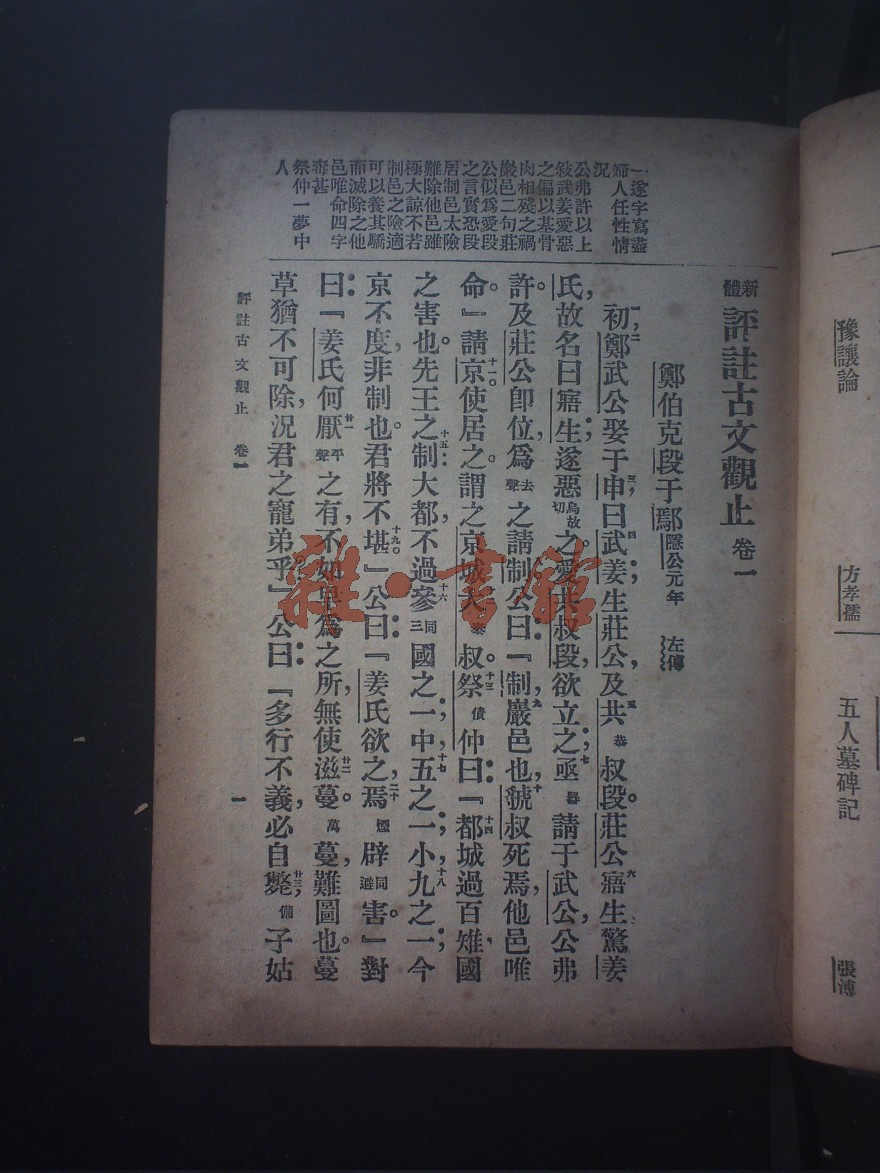 豫讓論
方孝孺
五人墓碑記
張溥
新體 評註古文觀止 卷一
鄭伯克段于鄢 隱公元年 左傳
初，鄭武公娶于申，曰武姜；生莊公，及共恭叔段。莊公寤生驚姜
氏，故名曰寤生；遂惡烏故切之。愛共叔段，欲立之；亟器請于武公，公弗
許。及莊公卽位，爲去聲之請制。公曰：『制，巖邑也，虢叔死焉，他邑唯
命。』請京，使居之。謂之京城大泰叔。祭債仲曰：『都城過百雉，國
之害也。先王之制：大都，不過參同三國之一；中，五之一；小，九之一；今
京不度，非制也。君將不堪。』公曰：『姜氏欲之，焉煙辟同避害。』對
曰：『姜氏何厭平聲之有，不如早爲之所，無使滋蔓。萬蔓，難圖也。蔓
草猶不可除，況君之寵弟乎。』公曰：『多行不義，必自斃；備子姑
一遂字寫盡
婦人任性情
況
公弗許以上
敍武姜愛惡
之偏以基骨
肉相殘之禍
巖邑二句莊
公似爲愛段
之言實恐段
居制邑太險
難除他邑雖
極大諒不若
制邑之險適
可以養其驕
而滅除之他
邑唯命四字
毒甚
祭仲一夢中
人
評註古文觀止 卷一
一
雜·書館